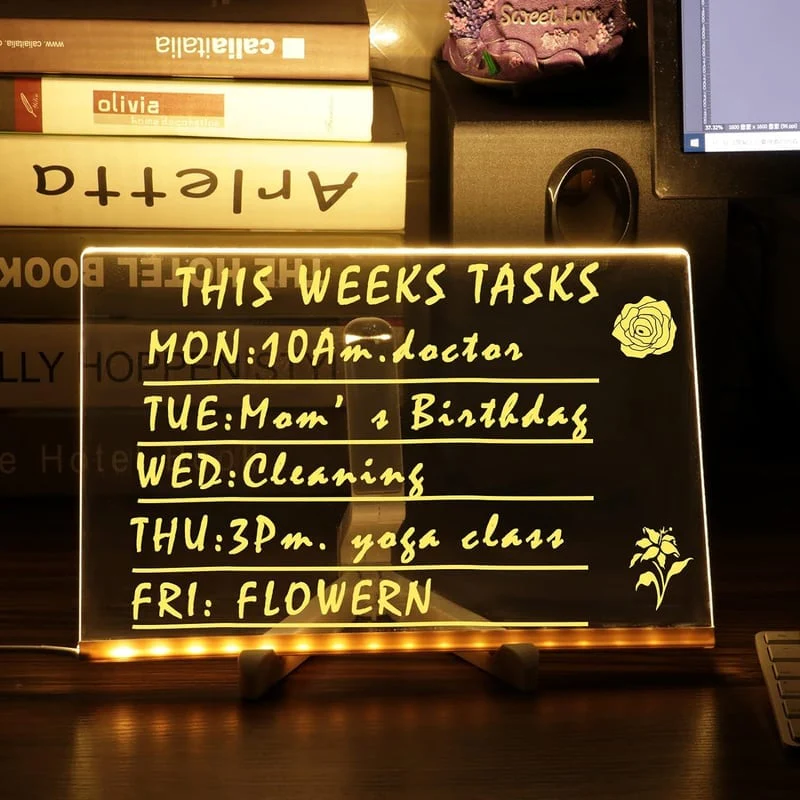 www.caliaitalia.com
caliaitalia
olivia
home decoration
Arletta
THE HOTEL BOOK
Sweet Love
THIS WEEKS TASKS
MON:10Am.doctor
TUE:Mom's Birthdag
WED:Cleaning
THU:3Pm. yoga class
FRI: FLOWERN